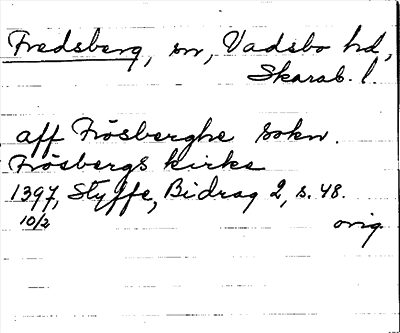 Fredsberg, sn, Vadsbo hd,
Skarab. l.
aff Frösberghe sokn.
Frösbergs kirke
1397, Styffe, Bidrag 2, s. 48.
10/2 orig.